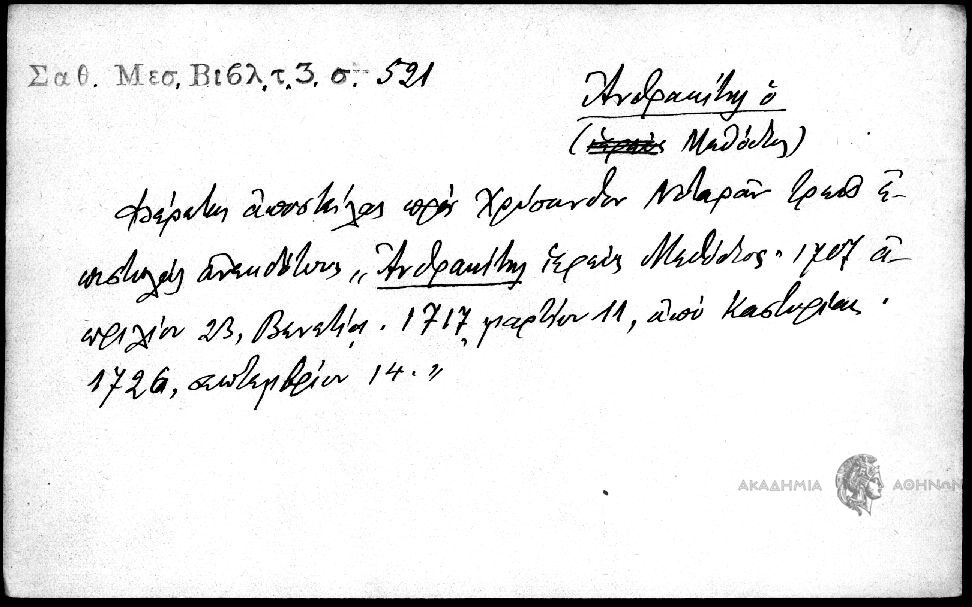 Σαθ. Μεσ. Βιβλ. τ. 3. σ. 521
Ἀνθρακίτης ὁ
(ἱερεὺς Μεθόδιος)
Φέρεται ἀποστείλας πρὸς Χρύσανθον Νοταρᾶν τρεῖς ἐ-
πιστολὰς ἀνεκδότους „Ἀνθρακίτης ἱερεὺς Μεθόδιος. 1707 ἀ-
πριλίου 23, Βενετία. 1717, μαρτίου 11, ἀπὸ Καστορίας.
1726, σεπτεμβρίου 14."
ΑΚΑΔΗΜΙΑ ΑΘΗΝΩΝ